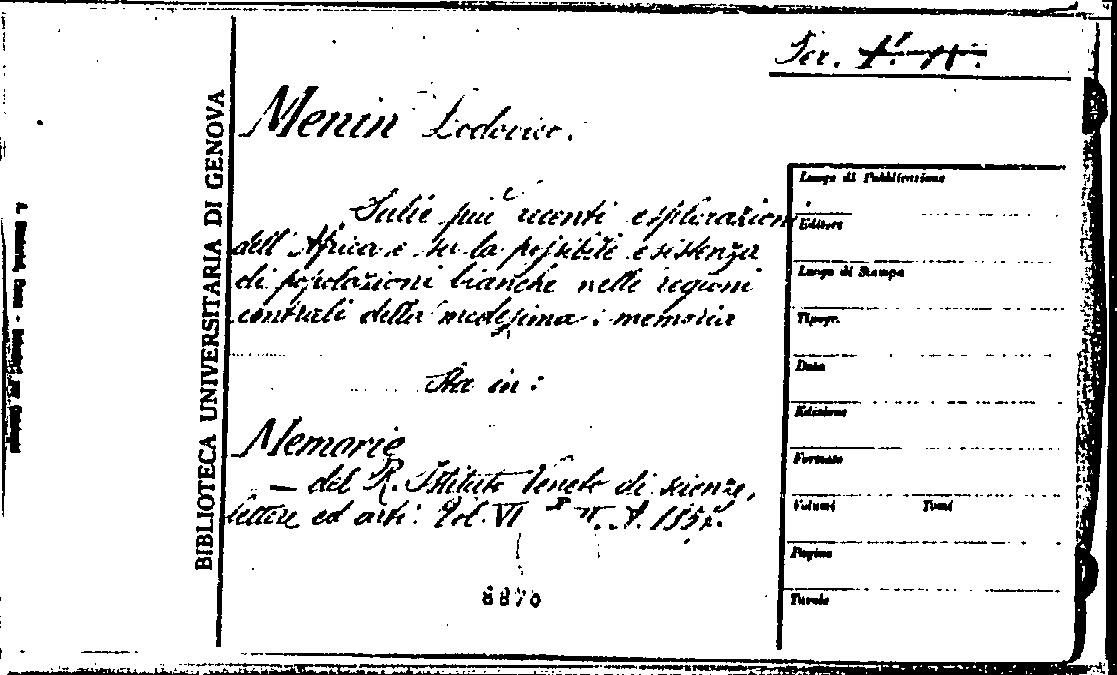 Ser.
BIBLIOTECA UNIVERSITARIA DI GENOVA
Menin Lodovico.
Sulle più recenti esplorazioni
dell'Africa e su la possibile esistenza
di popolazioni bianche nelle regioni
centrali della medesima: memoria
Sta in:
Memorie
— del R. Istituto Veneto di scienze,
lettere ed arti. Vol. VI
8870
Luogo di Pubblicazione
Editore
Luogo di Stampa
Tipogr.
Data
Edizione
Formato
Volumi Tomi
Pagine
Tavole